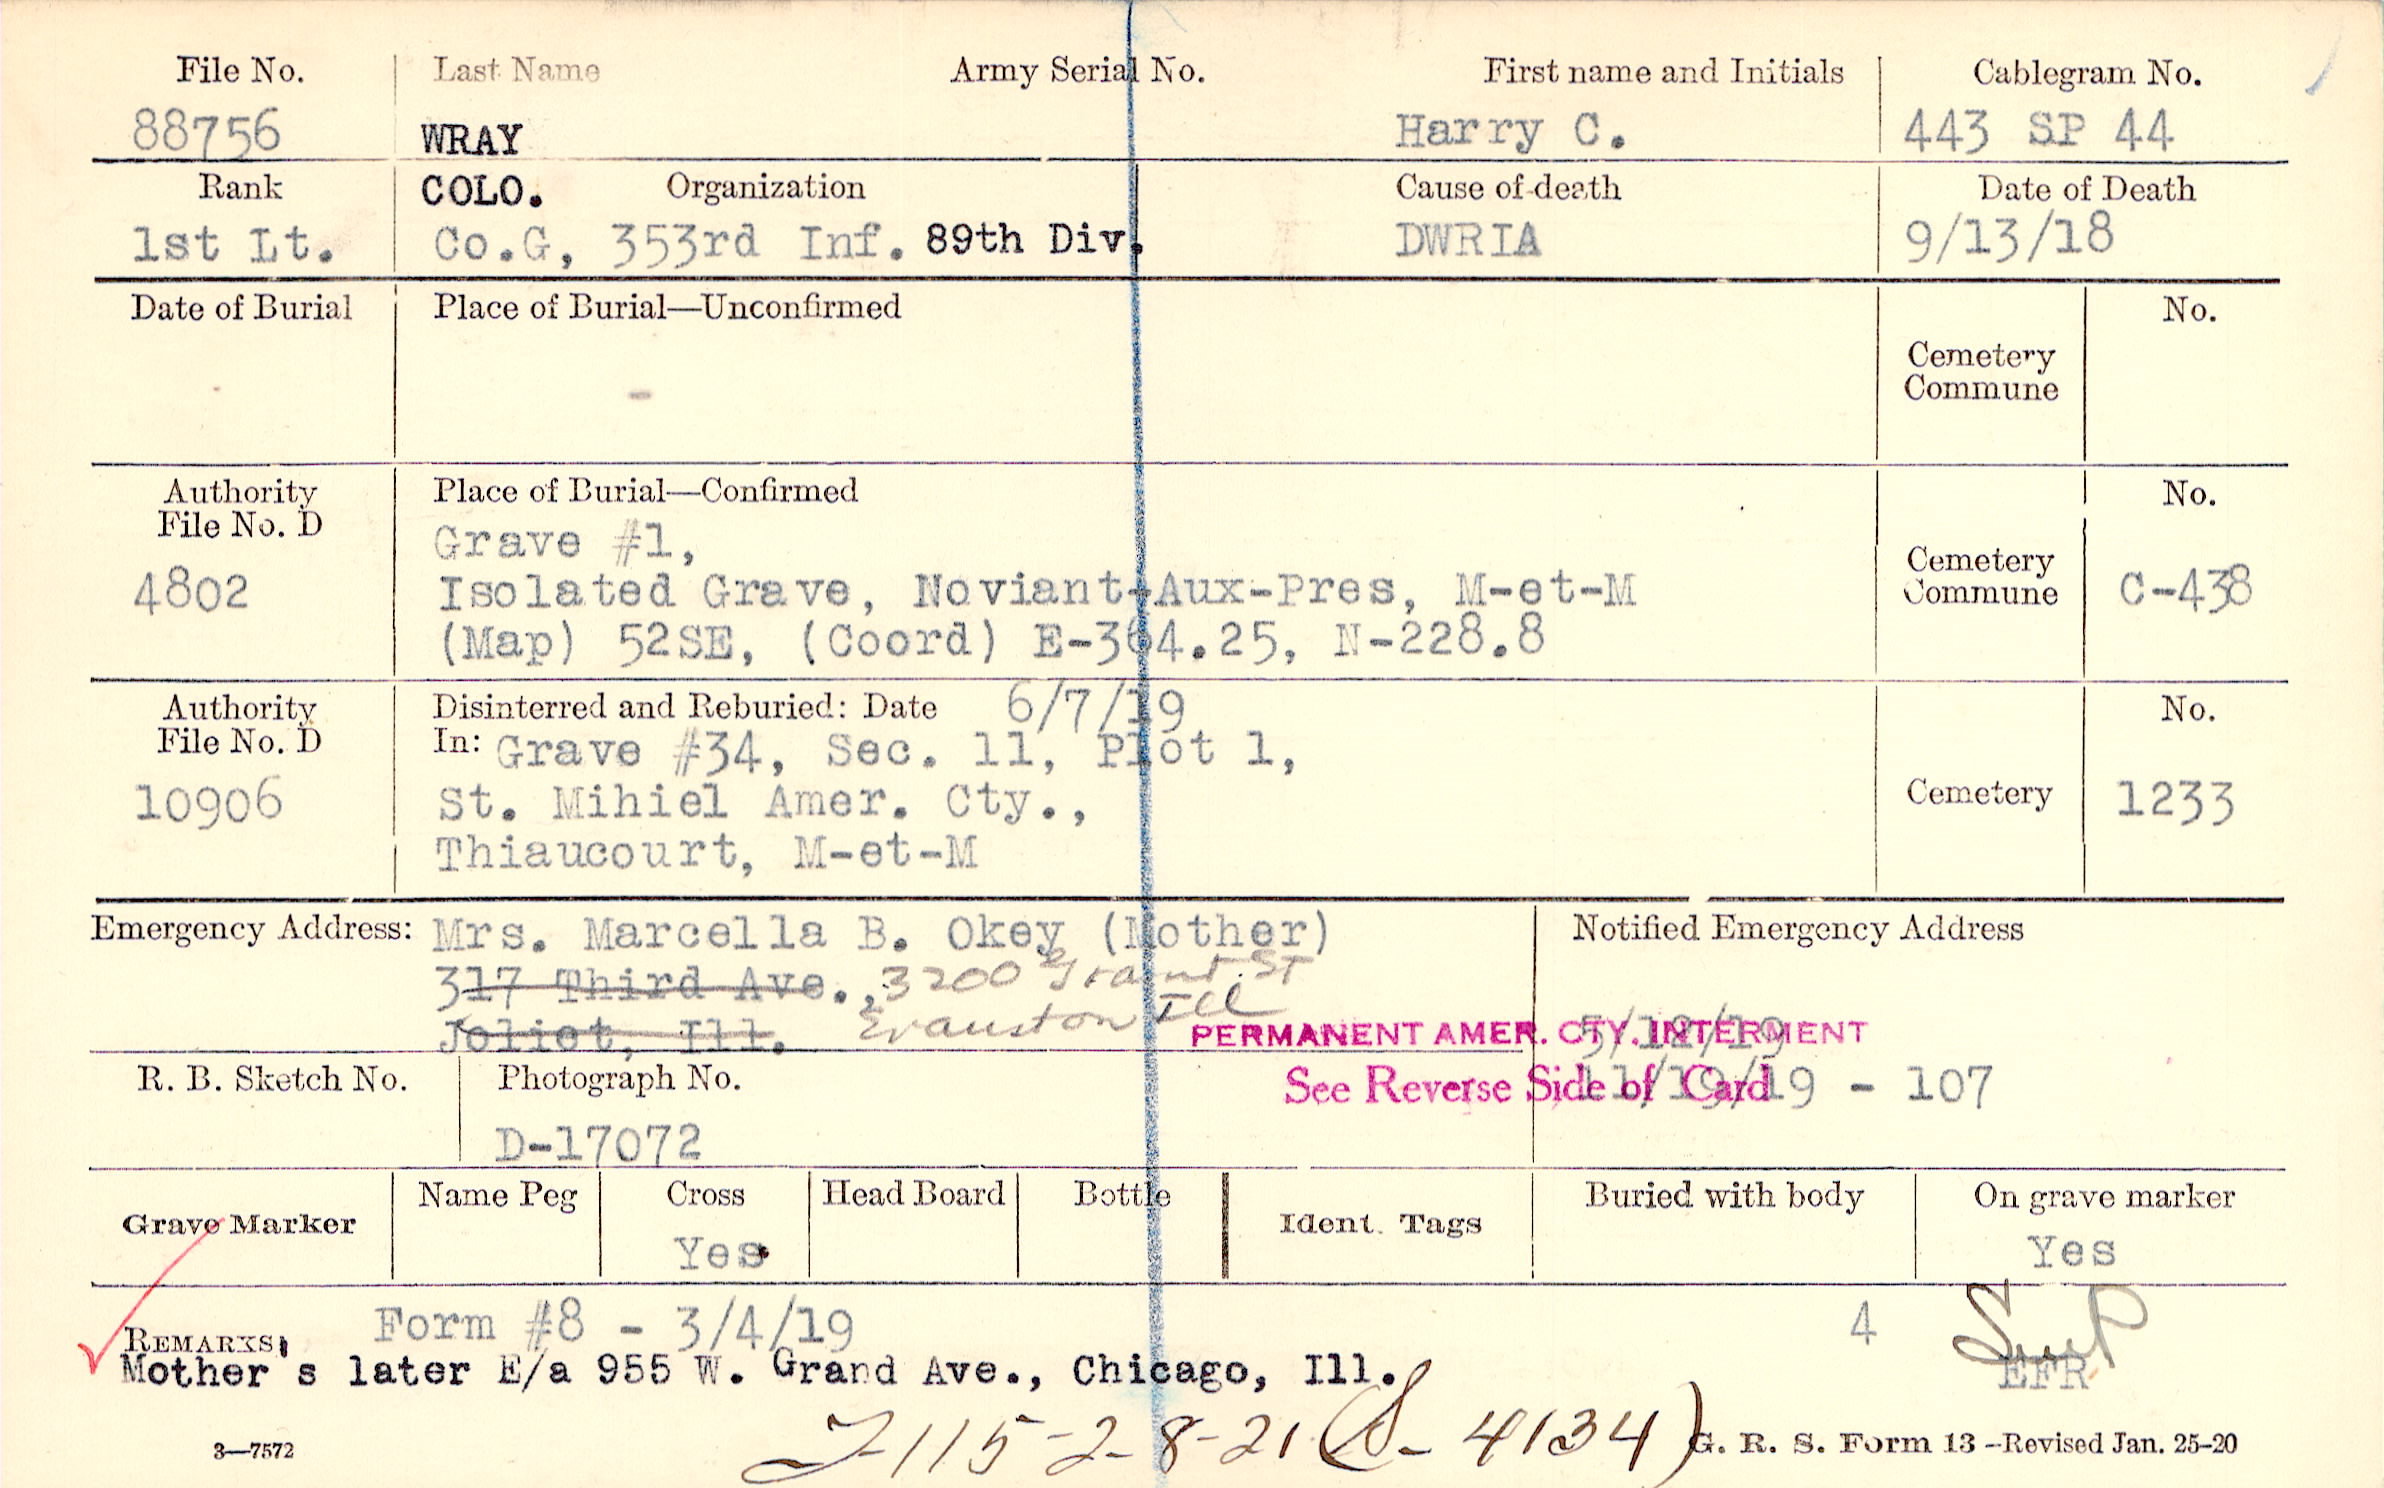 File No. Last Name Army Serial No. First name and Initials Cablegram No.
88756 WRAY Harry C. 443 SP 44
Rank COLO. Organization Cause of death Date of Death
1st Lt. Co.G, 353rd Inf. 89th Div. DWRIA 9/13/18
Date of Burial Place of Burial—Unconfirmed No.
Cemetery
Commune
-
Authority Place of Burial—Confirmed No.
File No. D
Grave #1,
4802 Isolated Grave, Noviant-Aux-Pres, M-et-M Cemetery Commune C-438
(Map) 52SE, (Coord) E-364.25, N-228.8
Authority Disinterred and Reburied: Date 6/7/19 No.
File No. D In: Grave #34, Sec. 11, Plot 1,
10906 St. Mihiel Amer. Cty., Cemetery 1233
Thiaucourt, M-et-M
Emergency Address: Mrs. Marcella B. Okey (Mother) Notified Emergency Address
317 Third Ave., 3200 Grant. ST
Joliet, Ill. Evanston Ill
PERMANENT AMER. CTY. INTERMENT 5/12/19
R. B. Sketch No. Photograph No. See Reverse Side of Card 11/19/19 - 107
D-17072
Grave Marker Name Peg Cross Head Board Bottle Ident. Tags Buried with body On grave marker
Yes Yes
REMARKS: Form #8 - 3/4/19 4
Mother's later E/a 955 W. Grand Ave., Chicago, Ill. EFR
115-2-8-21 (S- 4134)
3—7572 G. R. S. Form 13 -Revised Jan. 25-20